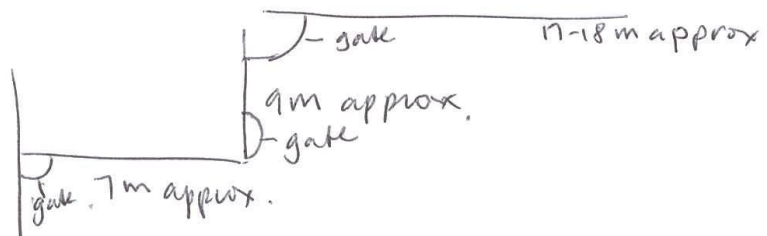 gate
17-18 m approx
9m approx.
gate
gate. 7m approx.